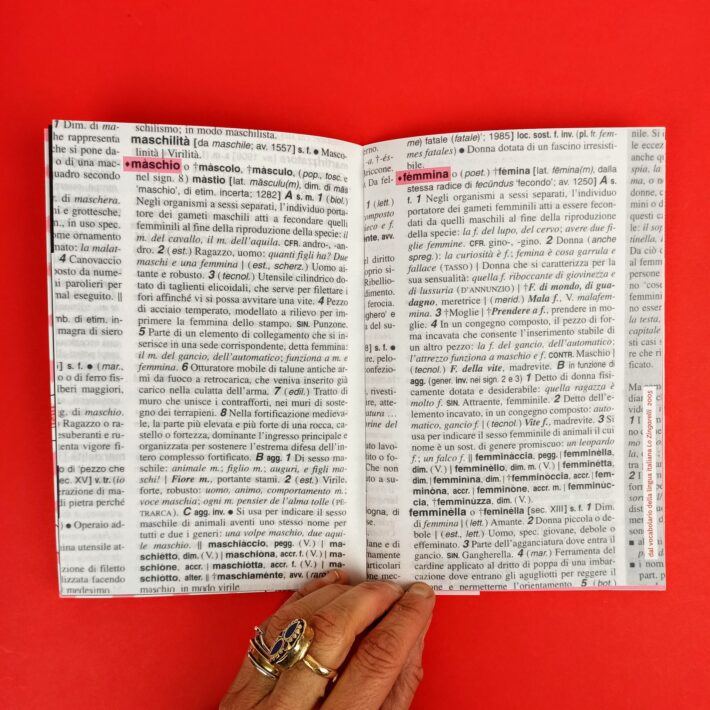 1 Dim. di ma-
he rappresenta
che si pone da-
o di una mac-
uadro secondo
. di maschera.
ni e grottesche,
n., in uso spec.
ome ornamento
mato: la malat-
4 Canovaccio
posto da nume-
ni parolieri per
mal eseguito. ||
mb. di etim. in-
magra di siero
i] s. f. ● (mar.,
o o di ferro fis-
lberi maggiori,
g. di maschio.
) Ragazzo o ra-
esuberanti e ru-
enta vigore fi-
o di 'pezzo che
ec. XV] v. tr. (io
erazione di ma-
di pietra perché
) ● Operaio ad-
ina utensile at-
zione di filetto
lizzata facendo
medesimo
schilismo; in modo maschilista.
maschilità [da maschile; av. 1557] s. f. ● Masco-
linità | Virilità.
♦màschio o †màscolo, †màsculo, (pop., tosc. e
nel sign. 8) mastio [lat. măsculu(m), dim. di mās
'maschio', di etim. incerta; 1282] A s. m. 1 (biol.)
Negli organismi a sessi separati, l'individuo porta-
tore dei gameti maschili atti a fecondare quelli
femminili al fine della riproduzione della specie: il
m. del cavallo, il m. dell'aquila. CFR. andro-, -an-
dro. 2 (est.) Ragazzo, uomo: quanti figli ha? Due
maschi e una femmina | (est., scherz.) Uomo ai-
tante e robusto. 3 (tecnol.) Utensile cilindrico do-
tato di taglienti elicoidali, che serve per filettare i
fori affinché vi si possa avvitare una vite. 4 Pezzo
di acciaio temperato, modellato a rilievo per im-
primere la femmina dello stampo. SIN. Punzone.
5 Parte di un elemento di collegamento che si in-
serisce in una sede corrispondente, detta femmina:
il m. del gancio, dell'automatico; funziona a m. e
femmina. 6 Otturatore mobile di talune antiche ar-
mi da fuoco a retrocarica, che veniva inserito già
carico nella culatta dell'arma. 7 (edil.) Tratto di
muro che unisce i contrafforti, nei muri di soste-
gno dei terrapieni. 8 Nella fortificazione medieva-
le, la parte più elevata e più forte di una rocca, ca-
stello o fortezza, dominante l'ingresso principale e
organizzata per sostenere l'estrema difesa dell'in-
tero complesso fortificato. B agg. 1 Di sesso ma-
schile: animale m.; figlio m.; auguri, e figli ma-
schi! | Fiore m., portante stami. 2 (est.) Virile,
forte, robusto: uomo, animo, comportamento m.;
voce maschia; ogni m. pensier de l'alma tolle (PE-
TRARCA). C agg. inv. ● Si usa per indicare il sesso
maschile di animali aventi uno stesso nome per
tutti e due i generi: una volpe maschio, due aqui-
le maschio. || maschiàccio, pegg. (V.) | ma-
schietto, dim. (V.) | maschiona, accr. f. (V.) | ma-
schióne, accr. | maschiòtta, accr. f. (V.) | ma-
schiotto, alter. || †maschiaménte, avv. (raro)
maschio, in modo virile.
me) fatale (fatale)'; 1985] loc. sost. f. inv. (pl. fr. fem-
mes fatales) ● Donna dotata di un fascino irresisti-
bile.
♦fémmina o (poet.) †fémina [lat. fēmina(m), dalla
stessa radice di fecŭndus 'fecondo'; av. 1250] A s.
f. 1 Negli organismi a sessi separati, l'individuo
portatore dei gameti femminili atti a essere fecon-
dati da quelli maschili al fine della riproduzione
della specie: la f. del lupo, del cervo; avere due fi-
glie femmine. CFR. gino-, -gino. 2 Donna (anche
spreg.): la curiosità è f.; femina è cosa garrula e
fallace (TASSO) | Donna che si caratterizza per la
sua sensualità: quella f. riboccante di giovinezza e
di lussuria (D'ANNUNZIO) | †F. di mondo, di gua-
dagno, meretrice | (merid.) Mala f., V. malafem-
mina. 3 †Moglie | †Prendere a f., prendere in mo-
glie. 4 In un congegno composto, il pezzo di for-
ma incavata che consente l'inserimento stabile di
un altro pezzo: la f. del gancio, dell'automatico;
l'attrezzo funziona a maschio e f. CONTR. Maschio |
(tecnol.) F. della vite, madrevite. B in funzione di
agg. (gener. inv. nei sign. 2 e 3) 1 Detto di donna fisi-
camente dotata e desiderabile: quella ragazza è
molto f. SIN. Attraente, femminile. 2 Detto dell'e-
lemento incavato, in un congegno composto: auto-
matico, gancio f. | (tecnol.) Vite f., madrevite. 3 Si
usa per indicare il sesso femminile di animali il cui
nome è un sost. di genere promiscuo: un leopardo
f.; un falco f. || femminàccia, pegg. | femminèlla,
dim. (V.) | femminèllo, dim. m. (V.) | femminétta,
dim. (V.) | femminìna, dim. | femminòccia, accr. | fem-
minóna, accr. | femminóne, accr. m. | femminùc-
cia, †femminuzza, dim. (V.)
femminèlla o †feminèlla [sec. XIII] s. f. 1 Dim.
di femmina | (lett.) Amante. 2 Donna piccola o de-
bole | (est., lett.) Uomo, spec. giovane, debole o
effeminato. 3 Parte dell'agganciatura dove entra il
gancio. SIN. Gangherella. 4 (mar.) Ferramenta del
cardine applicato al dritto di poppa di una imbar-
cazione dove entrano gli agugliotti per reggere il
e permetterne l'orientamento. 5 (bot.)
dal vocabolario della lingua italiana Lo Zingarelli 2005